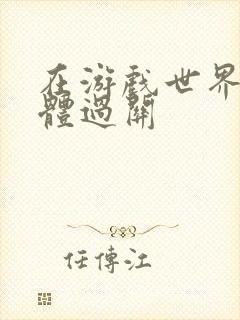 在游戏世界
體過關
任傳江